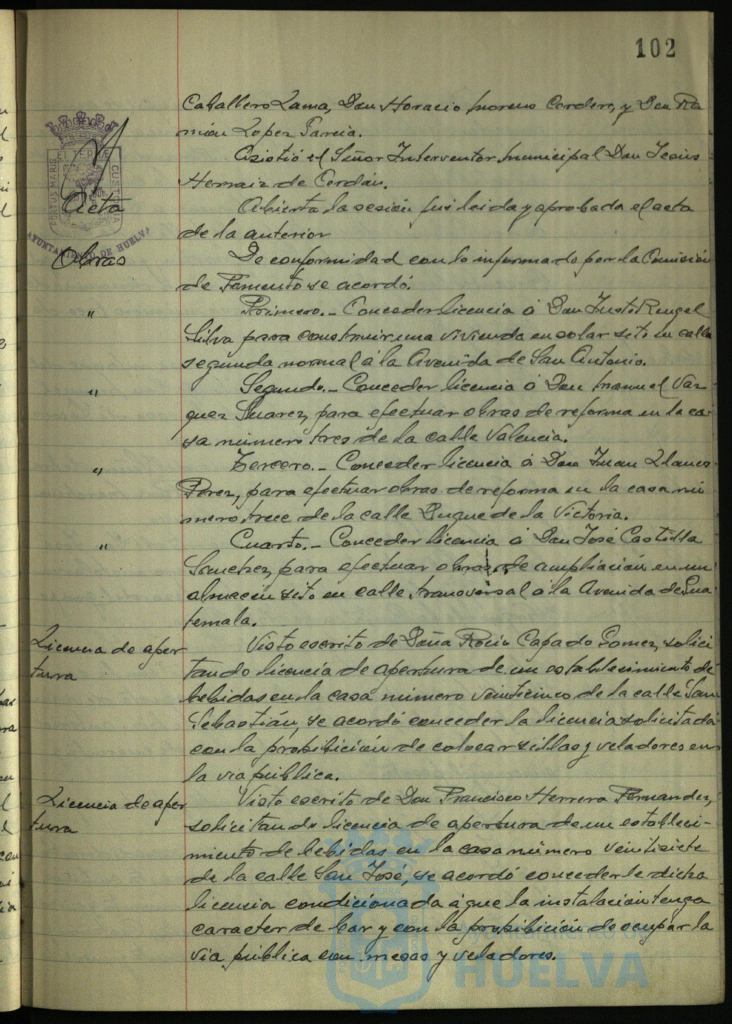 102
Caballero Lama, Don Horacio Moreno Cordero, y Don Ra
món Lopez García.
Asistió el Señor Interventor Municipal Don Jesús
Hernaiz de Cerdán.
Acta
Abierta la sesión fué leida y aprobada el acta
de la anterior
AYUNTAMIENTO DE HUELVA
Obras
De conformidad con lo informado por la Comisión
de Fomento se acordó.
" Primero.- Conceder licencia á Don Justo Rengel
Silva para construir una vivienda en solar sito en calle
segunda normal á la Avenida de San Antonio.
" Segundo.- Conceder licencia á Don Manuel Vaz
quez Suarez, para efectuar obras de reforma en la ca
sa número tres de la calle Valencia.
" Tercero.- Conceder licencia á Don Juan Llanes
Perez, para efectuar obras de reforma en la casa nú
mero trece de la calle Duque de la Victoria.
" Cuarto.- Conceder licencia á Don José Castilla
Sanchez, para efectuar obras de ampliación en un
almacén sito en calle transversal á la Avenida de Gua
temala.
Licencia de aper
tura
Visto escrito de Doña Rocio Capado Gomez, solici
tando licencia de apertura de un establecimiento de
bebidas en la casa número veinticinco de la calle San
Sebastián, se acordó conceder la licencia solicitada
con la prohibición de colocar sillas y veladores en
la via pública.
Licencia de aper
tura
Visto escrito de Don Francisco Herrera Fernandez,
solicitando licencia de apertura de un estableci-
miento de bebidas en la casa número veintisiete
de la calle San José, se acordó concederle dicha
licencia condicionada á que la instalación tenga
caracter de bar y con la prohibición de ocupar la
via pública con mesas y veladores.
HUELVA